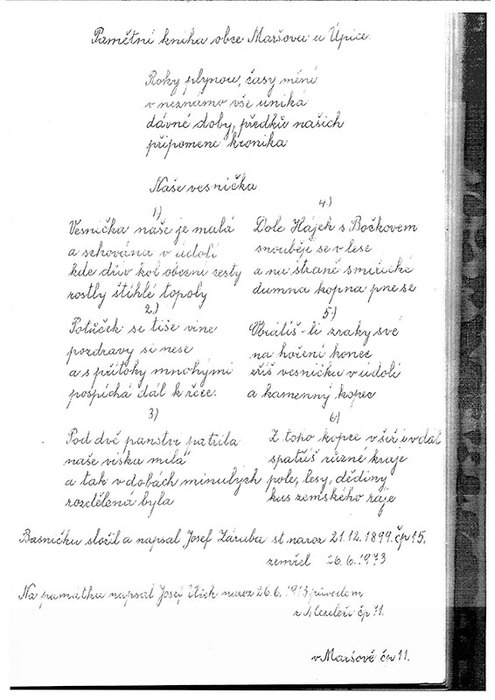 Pamětní kniha obce Maršova u Úpice.
Roky plynou, časy mění
v neznámo vše uniká
dávné doby, předků našich
připomene kronika
Naše vesnička
1)
Vesnička naše je malá
a schována v údolí
kde dřív kol obecní cesty
rostly štíhlé topoly
2.)
Potůček se tiše vine
pozdravy si nese
a s přítoky mnohými
pospíchá dál k řece.
3)
Pod dvě panství patřila
naše víska milá
a tak v dobách minulých
rozdělená byla
4)
Dole Hájek s Bočkovem
snoubějí se v lese
a na straně smrčické
dumna kopna pne se
5.)
Obrátíš-li zraky své
na hoření konec
zříš vesničku v údolí
a kamenný kopec
6.)
Z toho kopce v šíř i v dál
spatříš různé kraje
pole, lesy, dědiny
kus zemského ráje
Básničku složil a napsal Josef Záruba st. naroz 21.12.1899. čp 15.
zemřel 26.6.1973
Na památku napsal Josef naroz 26.6.1913 původem
z čp 11.
v Maršově čp 11.